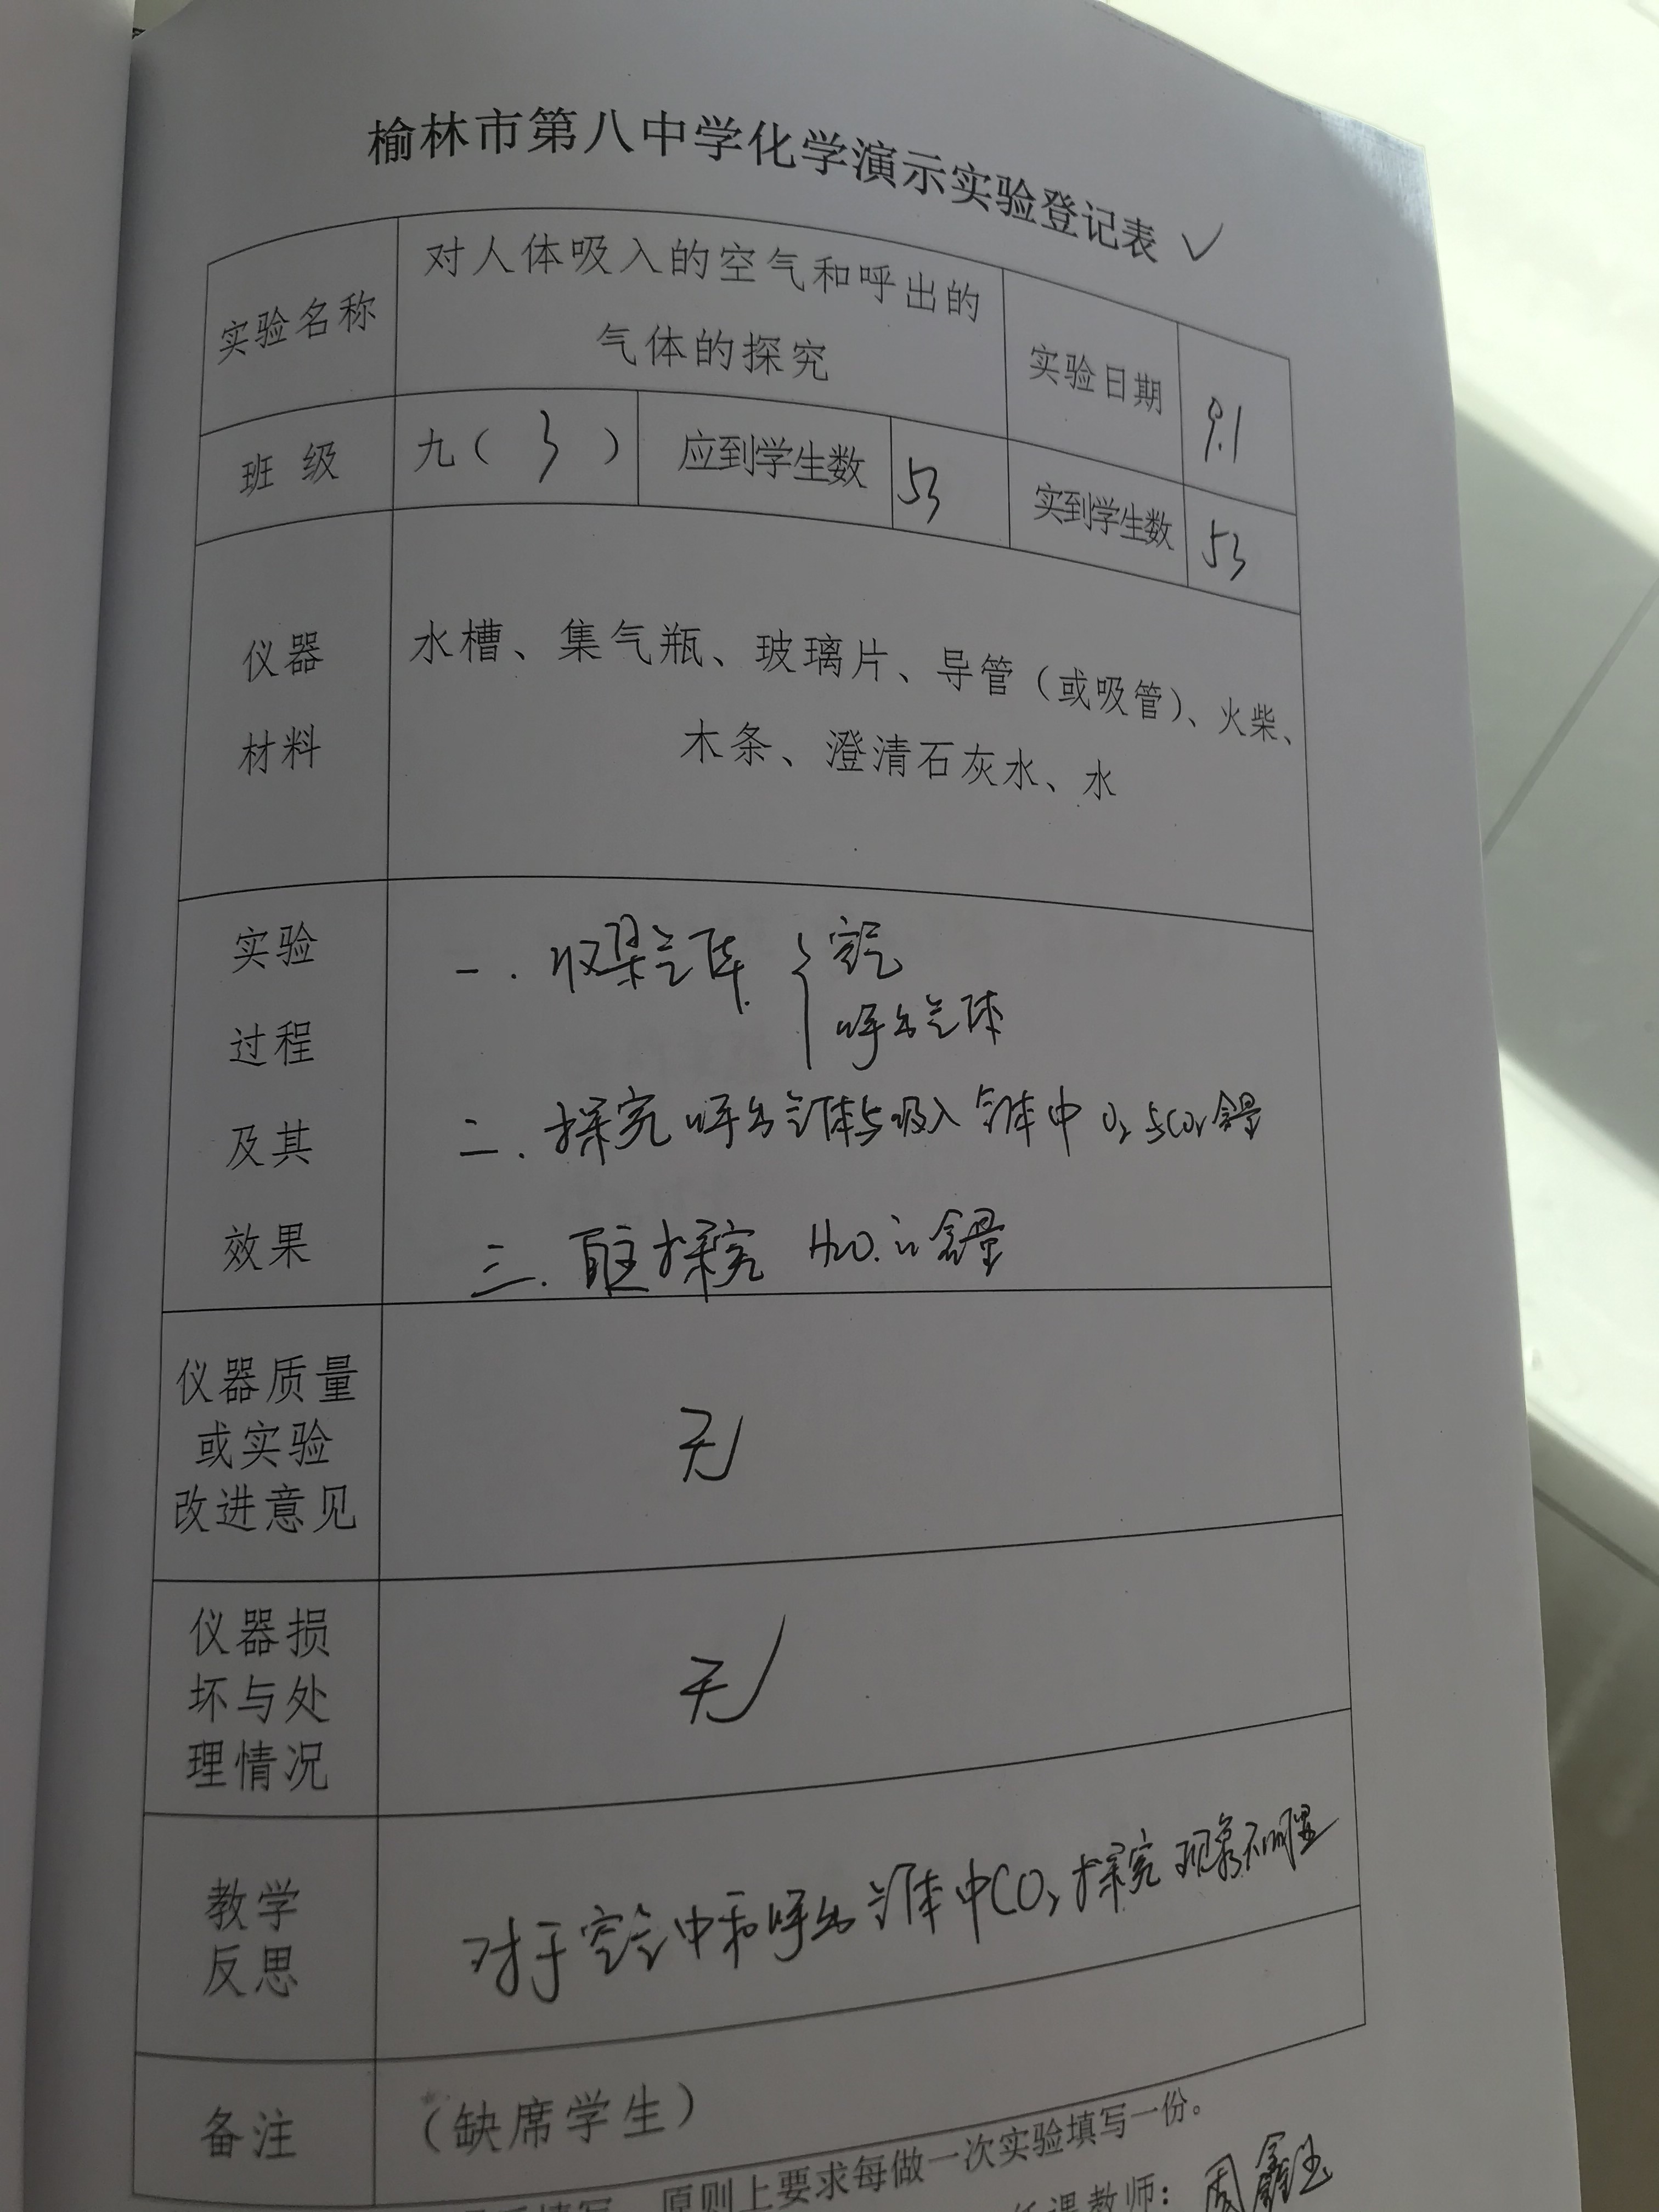 榆林市第八中学化学演示实验登记表 ✓
实验名称
对人体吸入的空气和呼出的
气体的探究
实验日期
9.1
班 级
九（ 3 ）
应到学生数
53
实到学生数
53
仪器
材料
水槽、集气瓶、玻璃片、导管（或吸管）、火柴、
木条、澄清石灰水、水
实验
过程
及其
效果
一. 收集气体 { 空气
呼出气体
二. 探究呼出气体与吸入气体中 O₂ 与CO₂ 含量
三. 探究 H₂O 含量
仪器质量
或实验
改进意见
无
仪器损
坏与处
理情况
无
教学
反思
对于空气中和呼出气体中CO₂ 探究现象不明显
备注
（缺席学生）
填写，原则上要求每做一次实验填写一份。
任课教师：周鑫